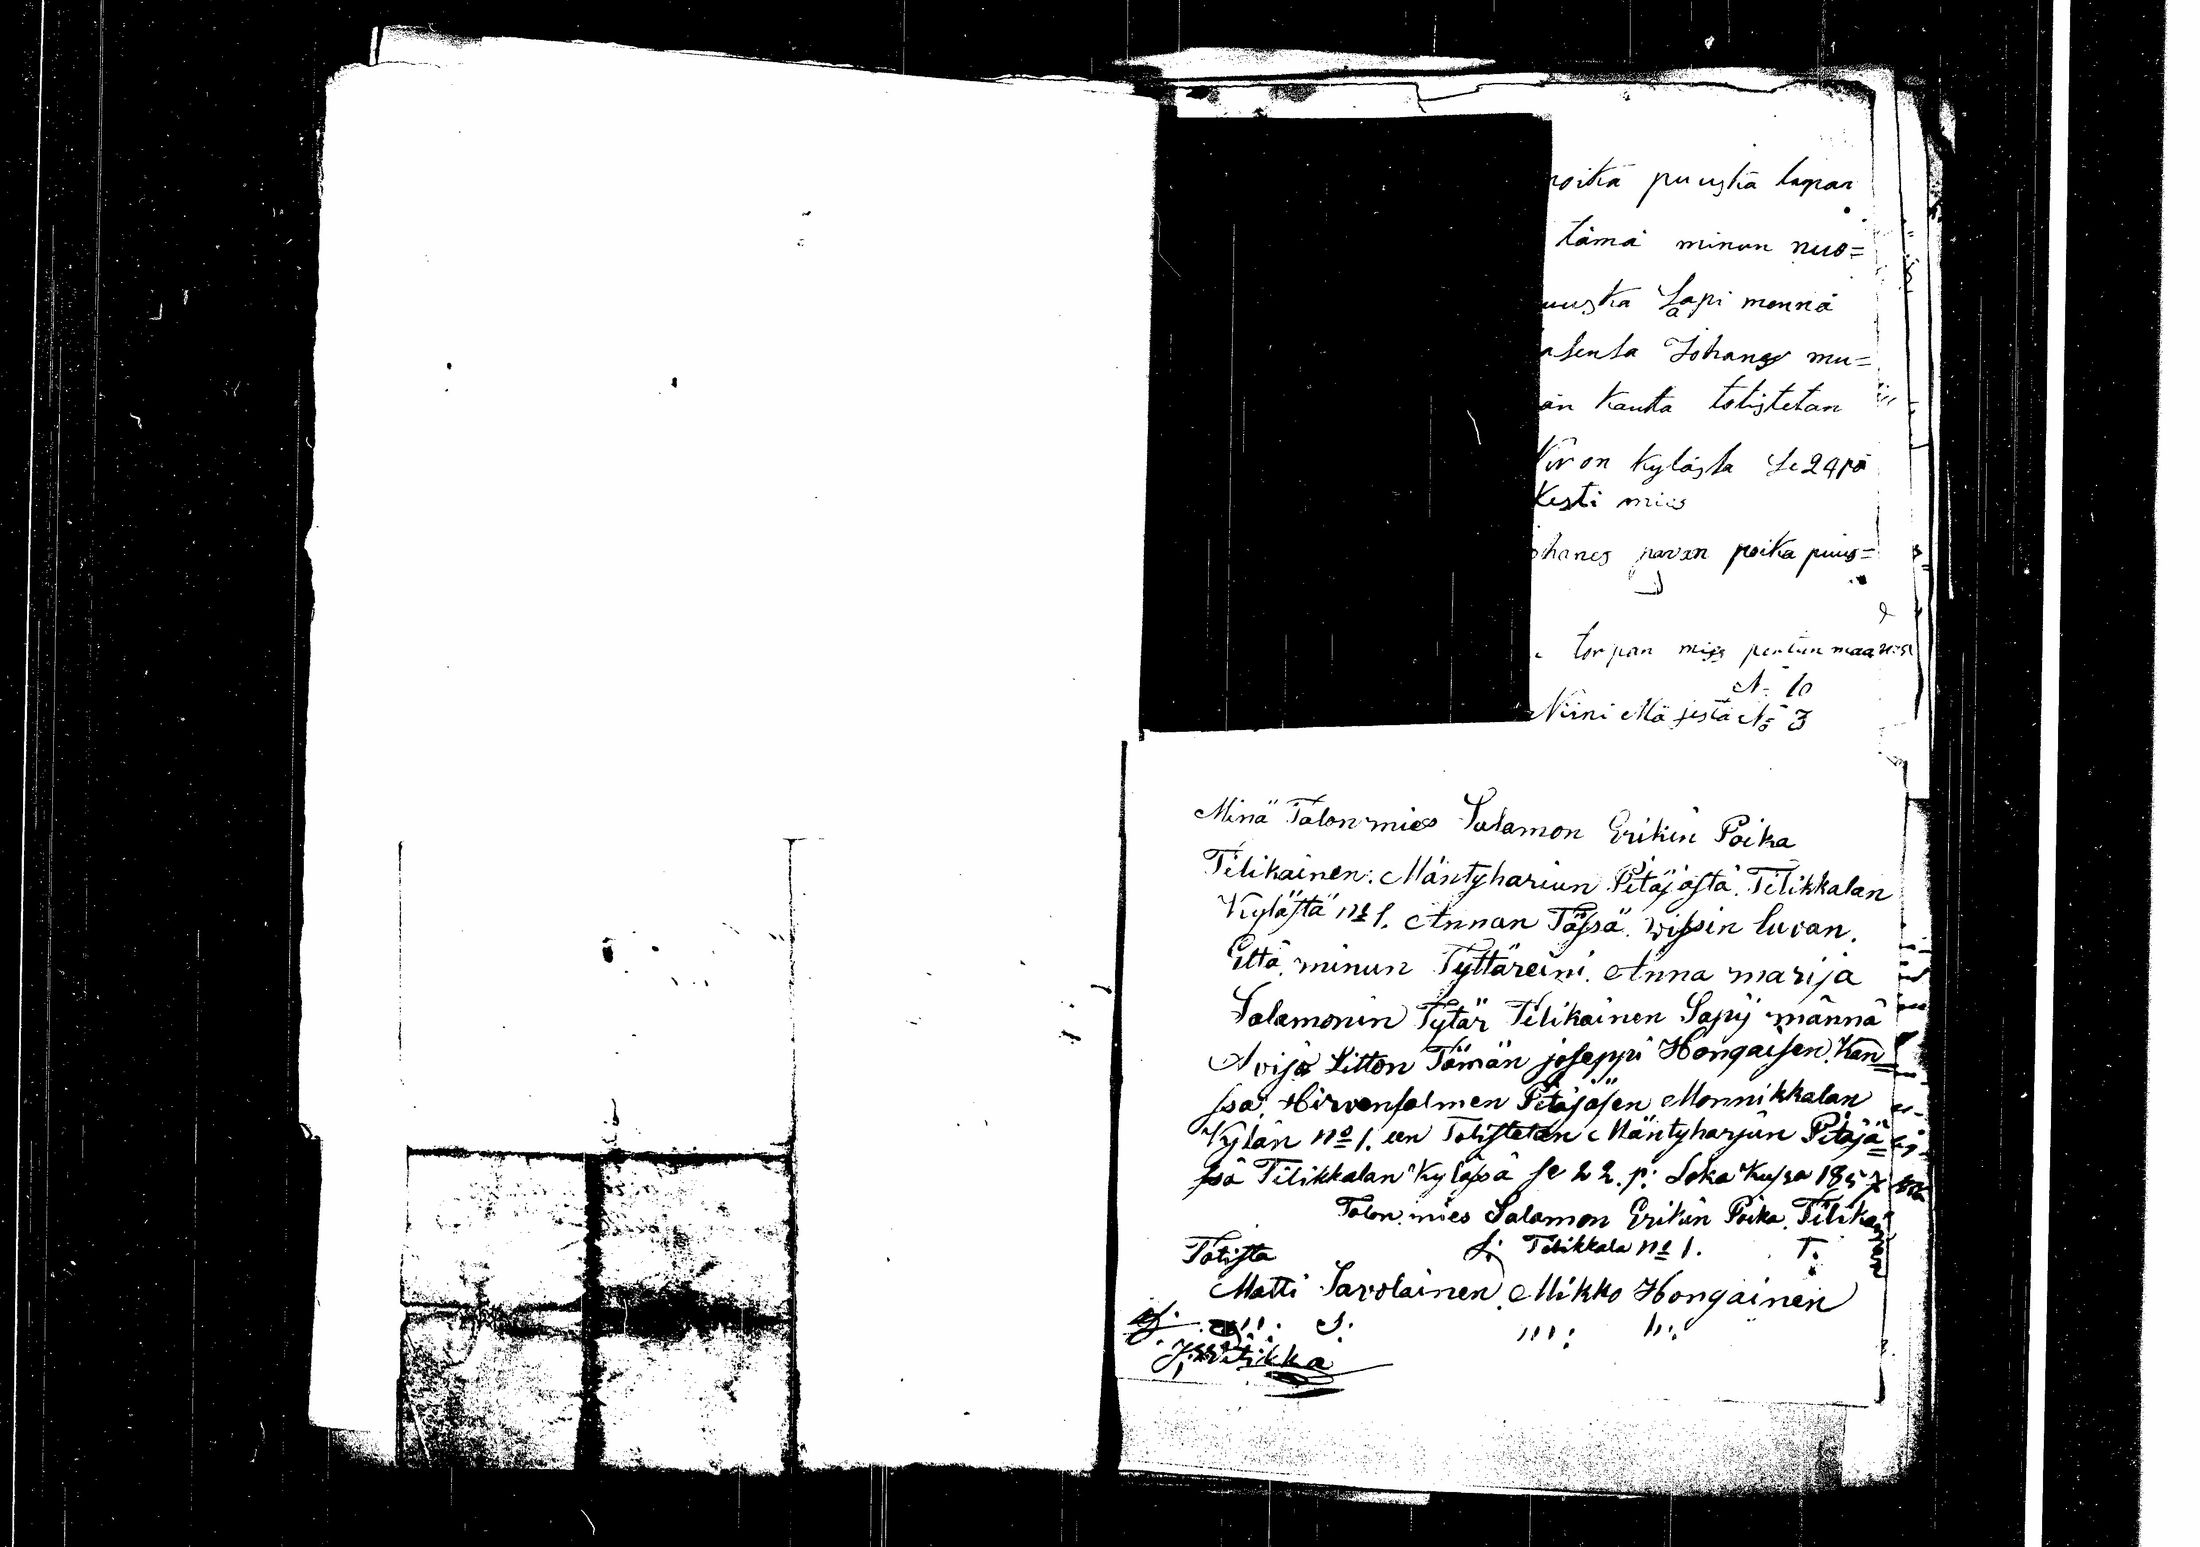 poika puusta lapan
tämä minun nuo=
uusta Sapi mennä
Johanes mu=
än Kautta totistetan
kylästa Se 24 pä
Kesti mies
ohanes pavon poika puus=
torpan mies
N= 10
Niini Mä jestä No 3
Minä Talon mies Salamon Erikin Poika
Tilikainen. Mäntyhariun Pitäjästä. Tilikkalan
Kylästä No 1. Annan Tässä. wissin luvan.
Että minun Tyttäreini. Anna marija
Salamonin Tytär Tilikainen Sapij männä
Avijo Litton Tämän joseppi Hongaisen Kan=
ssa. Hirvensalmen Pitäjäsen Monnikkalan
Kylän No 1. een Totistetan Mäntyharjun Pitäjä=
ssä Tilikkalan Kylässä se 22. p: Loka Kusa 1857
Talon mies Salamon Erikin Poika Tilika
S. Tilikkala No 1. T.
Totista
Matti Savolainen Mikko Hongainen